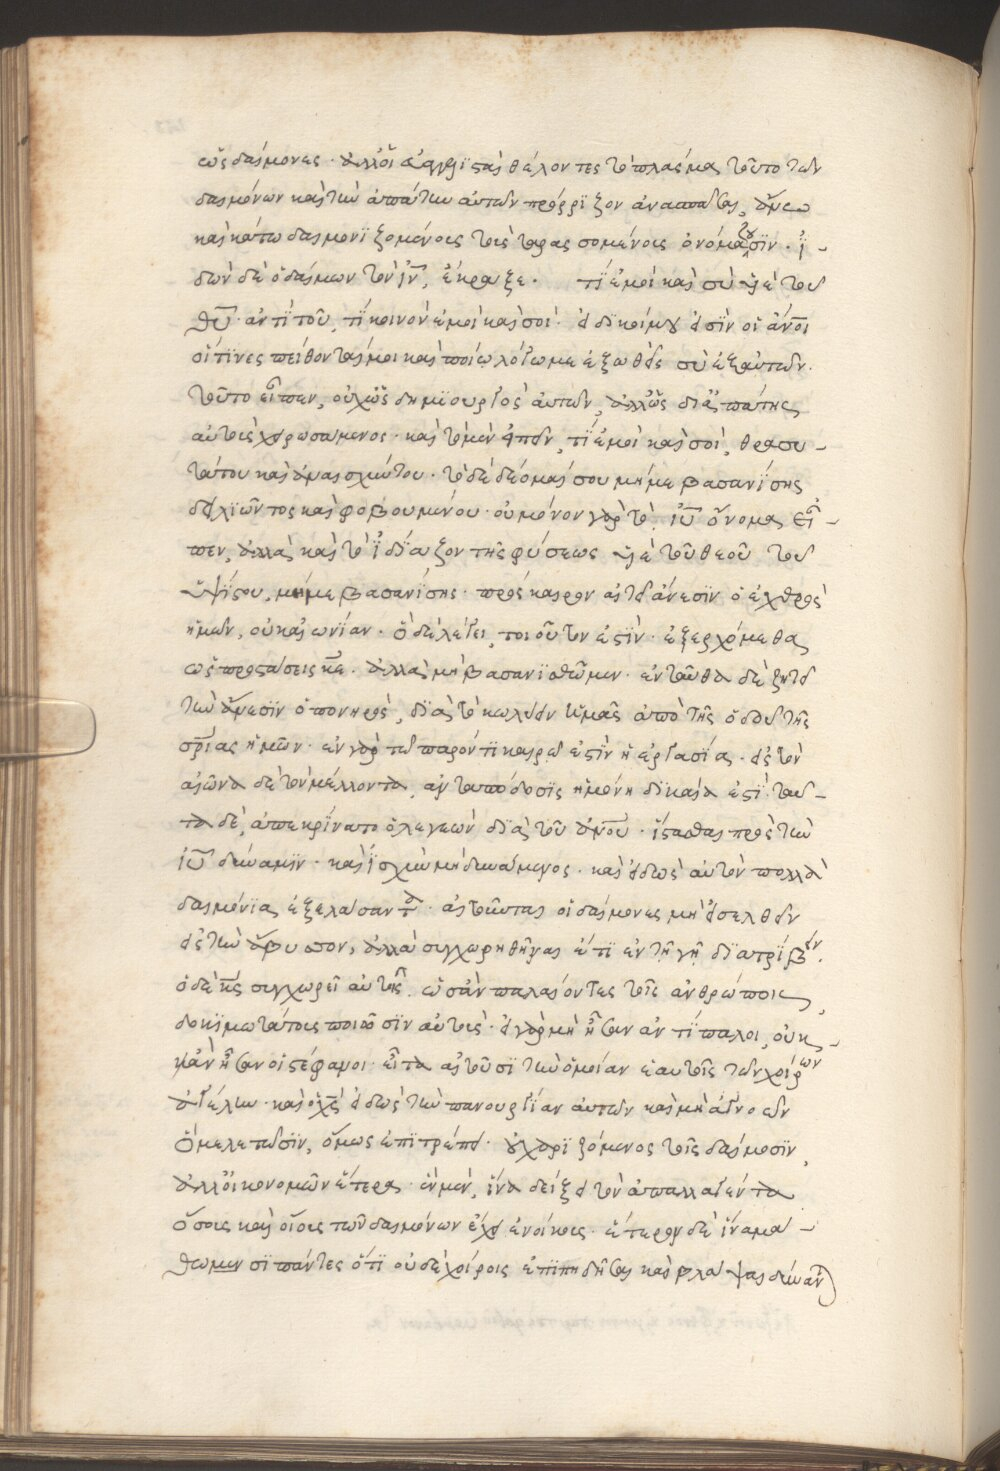 ὡς δαίμονες · ἀλλ' οἱ εὐαγγελισταὶ θέλοντες τὸ πλάσμα τοῦτο τῶν
δαιμόνων καὶ τὴν ἀπάτην αὐτῶν πρόρριζον ἀνασπάσαι, ἄνω
καὶ κάτω δαιμονϊζομένοις τοὺς ταρασσομένους ὀνομάζουσϊν · ἰ-
δὼν δὲ ὁ δαίμων τὸν ἰν̅, ἔκραξε · τί ἐμοὶ καὶ σὺ υἱὲ τοῦ
θυ̅ · ἀντὶ τοῦ, τί κοινὸν ἐμοὶ καὶ σοί · οἱ ἀν̅οι
οἵτϊνες πείθονταί μοι καὶ ἔξωθεῖς σὺ ἐξ αὐτῶν ·
τοῦτο εἶπεν, οὐχ ὡς δημϊουργὸς αὐτῶν, ἀλλ' ὡς δι' ἀπάτης
αὐτοὺς χειρωσάμενος · καὶ τὸ μὲν εἰπεῖν, τί ἐμοὶ καὶ σοί, θρασυ-
τάτου καὶ ἀναισχύντου · τὸ δὲ δέομαί σου μή με βασανίσῃς
δειλϊῶντος καὶ φοβουμένου · οὐ μόνον γὰρ τὸ ιυ̅ ὄνομα εἶ-
πεν, ἀλλὰ καὶ τὸ ἰδϊάζον τῆς φύσεως υἱὲ τοῦ θεοῦ τοῦ
ὑψίστου, μή με βασανίσῃς · πρὸς καιρὸν αἰτεῖ ἄνεσϊν ὁ ἐχθρὸς
ἡμῶν, οὐκ αἰωνίαν · ὃ δὲ λέγει, τοιοῦτον ἐστϊν · ἐξερχόμεθα
ὡς προστάσσεις κε̅ · ἀλλὰ μὴ βασανισθῶμεν · ἐνταῦθα δὲ ζητεῖ
τὴν ἄνεσϊν ὁ πονηρὸς, δϊὰ τὸ κωλύειν ἡμᾶς ἀπὸ τῆς ὁδοῦ τῆς
σρ̅ίας ἡμῶν · ἐν γὰρ τῷ παρόντϊ καιρῷ ἐστϊν ἡ ἐργασία · εἰς τὸν
αἰῶνα δὲ τὸν μέλλοντα, ἀνταπόδοσϊς ἡ μόνη δϊκαία ἐστϊ · ταῦ-
τα δὲ, ἀπεκρίνατο ὁ λεγεὼν δϊὰ τοῦ ἀν̅ου · ἵστασθαι πρὸς τὴν
ιυ̅ δύναμϊν · καὶ ἰσχὺν μὴ δυνάμενος · καὶ εἰδὼς αὐτὸν πολλὰ
δαιμόνϊα ἐξελάσαντα · αἰτοῦνται οἱ δαίμονες μὴ εἰσελθεῖν
εἰς τὴν ἄβυσσον, ἀλλὰ συγχωρηθῆναι ἔτϊ ἐν τῇ γῇ δϊατρίβειν ·
ὁ δὲ κς̅ συγχωρεῖ αὐτοῖς · ὡς ἂν παλαίοντες τοῖς ἀνθρώποις,
δοκϊμωτάτους ποιῶσϊν αὐτοὺς · εἰ γὰρ μὴ ἦσαν ἀντίπαλοι, οὐκ
ἂν ἦσαν οἱ στέφανοι · εἶτα αἰτοῦσϊ τὴν ὁμοίαν ἑαυτοῖς τῶν χοίρων
ἀγέλην · καὶ ὁ χς̅ εἰδὼς τὴν πανουργίαν αὐτῶν καὶ μὴ ἀγνοῶν
ὃ μελετῶσϊν, ὅμως ἐπϊτρέπει · οὐ χαρϊζόμενος τοῖς δαίμοσϊν,
ἀλλ' οἰκονομῶν ἕτερα · ἓν μὲν, ἵνα δείξῃ τὸν ἀπαλλαγέντα
ὅσοις καὶ οἵοις τῶν δαιμόνων εἶχε ἐνοίκοις · ἕτερον δὲ ἵνα μά-
θωμεν οἱ πάντες ὅτϊ οὐδὲ χοίροις ἐπϊπηδῆσαι καὶ βλάψαι δύναν